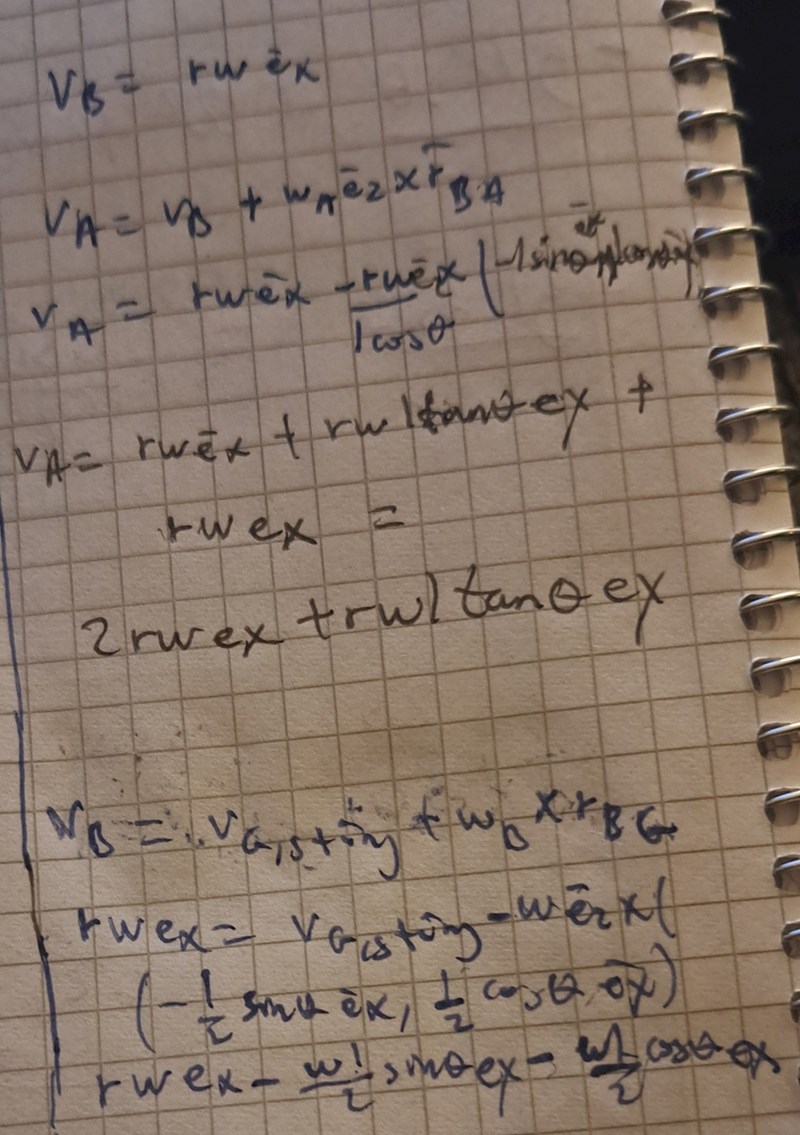 v_B = rω ēx
v_A = v_B + ω_A ēz × r̄_BA
v_A = rω ēx - rω ēz/(l cosθ) × (-l sinθ
v_A = rω ēx + rω l tanθ ey +
rω ex =
2rω ex + rω l tanθ ey
v_B = v_G,stöng + ω_D × r_BG
rω ex = v_G,stöng - ω ēz × (
(-l/2 sinθ ēx, l/2 cosθ ēy)
rω ex - ωl/2 sinθ ey - ωl/2 cosθ ex